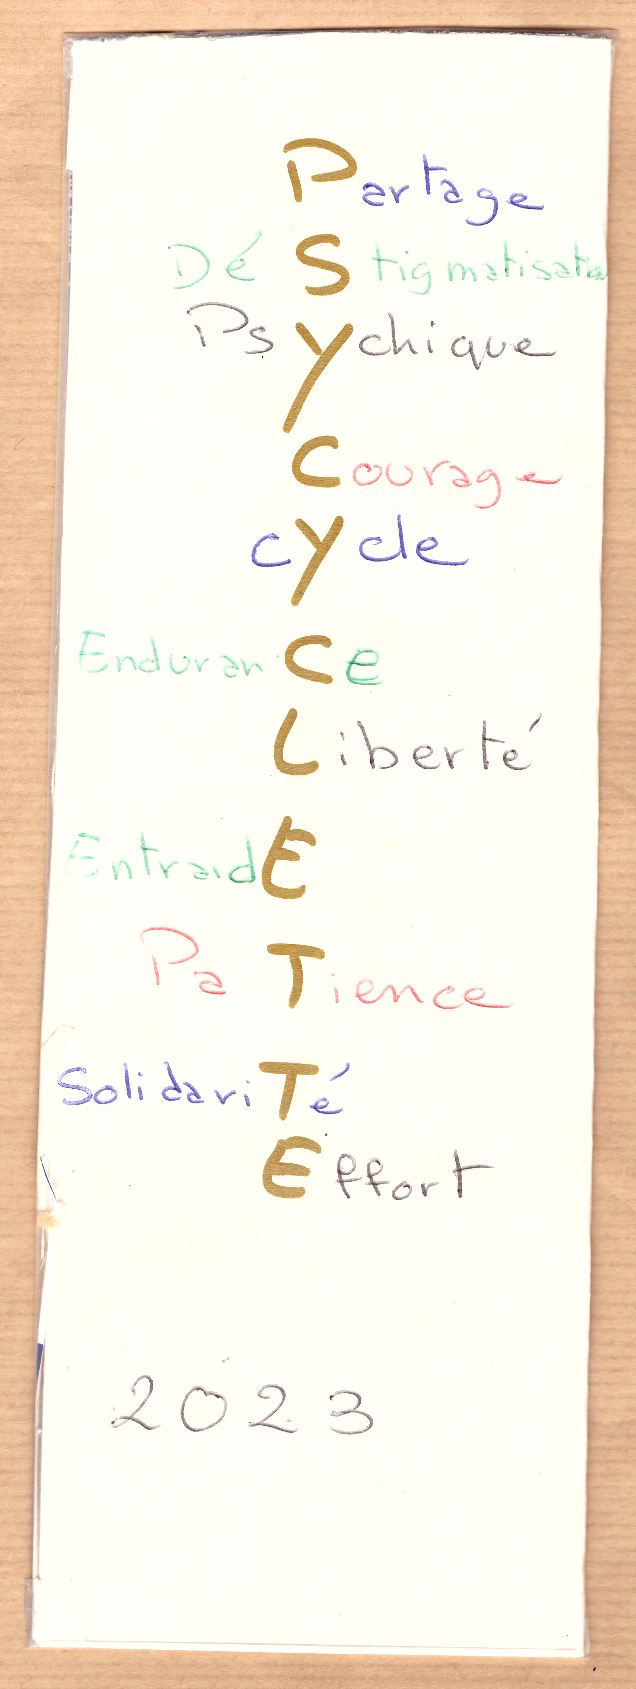 Partage
DéStigmatisation
PsYchique
Courage
cYcle
EnduranCe
Liberté
EntraidE
PaTience
SolidariTé
Effort
2023